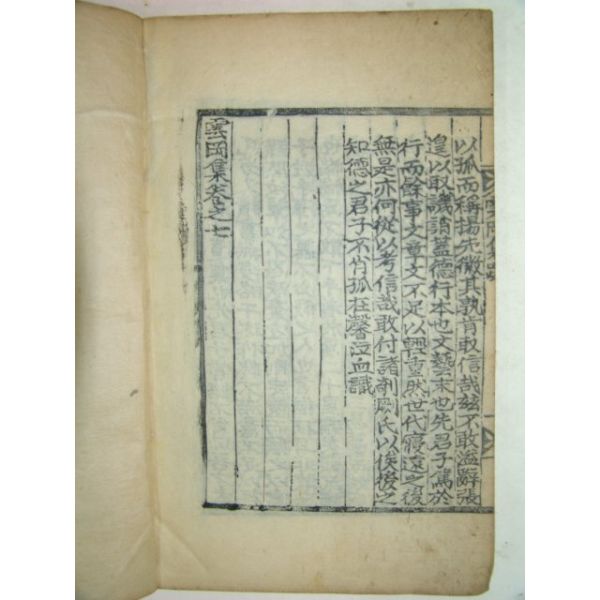 以孤而稱揚先徽其孰肯取信哉玆不敢溢辭張
皇以取譏誚蓋德行本也文藝末也先君子篤於
行而餘事文章文不足以輕重然世代寢遠之後
無是亦何從以考信哉敢付諸剞劂氏以俟後之
知德之君子不肖孤在馨泣血識
雲岡集卷之七